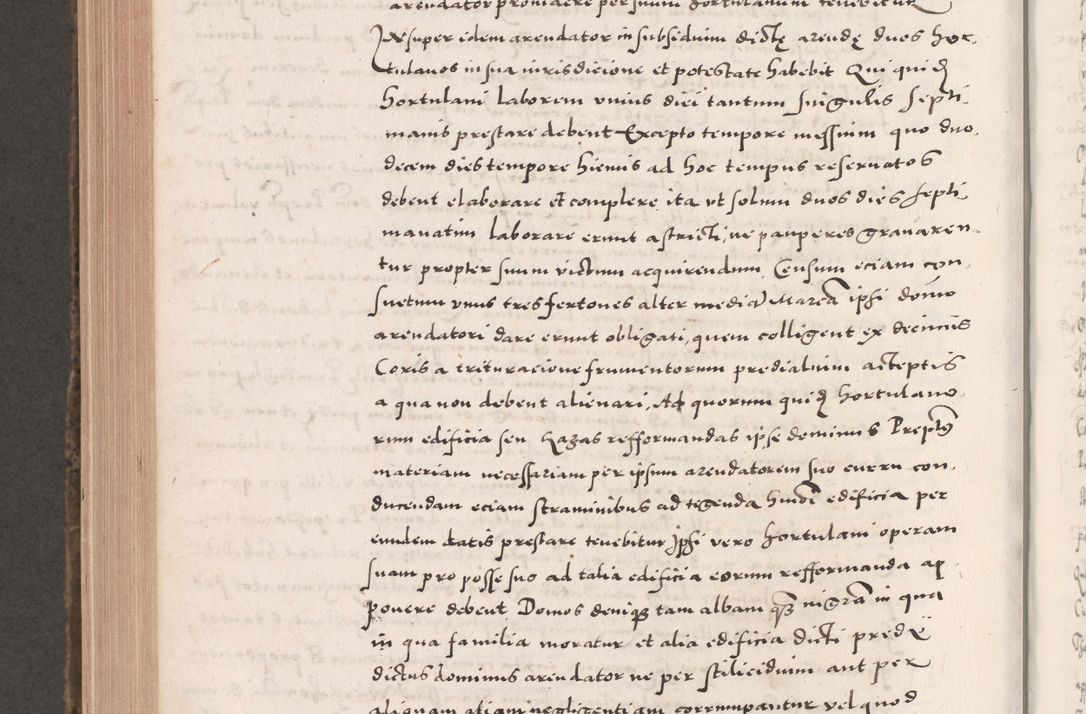 arendator pro maiore per suum hortulanum tenebitur
Insuper idem arendator in subsidium dictę arendę duos hor-
tulanos in sua iurisdicione et potestate habebit Qui quidem
hortulani laborem unius diei tantum singulis septi-
manis prestare debent Excepto tempore messium quo duo-
decem dies tempore hiemis ad hoc tempus reservatos
debent elaborare et complere ita ut solum duos dies septi-
manatim laborare erunt astricti, ne pauperes gravaren-
tur propter suum victum acquirendum. Censum eciam con-
suetum unus tres fertones alter mediã Marcã ipsi domino
arendatori dare erunt obligati, quem colligent ex decimis
Coris a trituracione frumentorum predialium acceptis
a qua non debent alienari. Ad quorum quidem hortulano-
rum edificia seu kazas refformandas ipse dominus Preptus
materiam necessariam per ipsum arendatorem suo curru con-
ducendam eciam straminibus ad tegenda huiusmodi edificia per
eundem datis prestare tenebitur Ipsi vero hortulani operam
suam pro posse suo ad talia edificia eorum refformanda ap-
ponere debent Domos denique tam albam quam nigrã in qua
in qua familia moratur et alia edificia dicti predÿ
dictus dominus arendator ne per stilicidium aut per
aliquam aliam negligentiam corrumpantur vel quod